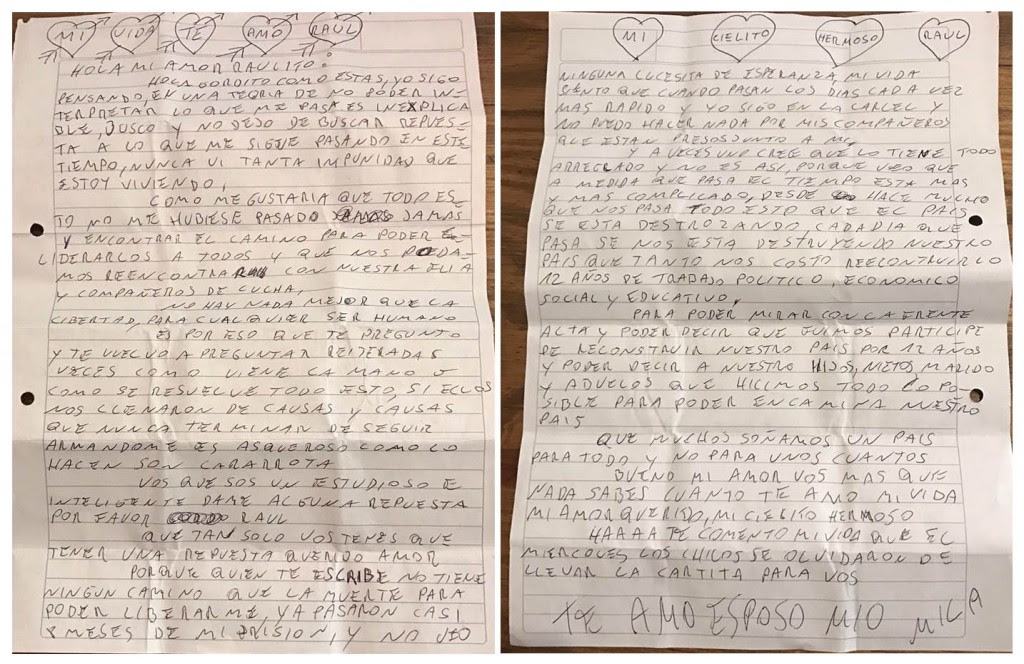 MI VIDA TE AMO RAUL
HOLA MI AMOR RAULITO:
HOLA GORDITO COMO ESTAS, YO SIGO
PENSANDO, EN UNA TEORIA DE NO PODER IN-
TERPRETAR LO QUE ME PASA ES INEXPLICA
BLE, BUSCO Y NO DEJO DE BUSCAR REPUES-
TA A LO QUE ME SIGUE PASANDO EN ESTE
TIEMPO, NUNCA VI TANTA IMPUNIDAD QUE
ESTOY VIVIENDO,
COMO ME GUSTARIA QUE TODO ES
TO NO ME HUBIESE PASADO JAMAS
Y ENCONTRAR EL CAMINO PARA PODER
LIDERARLOS A TODOS Y QUE NOS PODA-
MOS REENCONTRA CON NUESTRA FLIA
Y COMPAÑEROS DE LUCHA,
NO HAY NADA MEJOR QUE LA
LIBERTAD, PARA CUALQUIER SER HUMANO
ES POR ESO QUE TE PREGUNTO
Y TE VUELVO A PREGUNTAR REITERADAS
VECES COMO VIENE LA MANO
COMO SE RESUELVE TODO ESTO, SI ELLOS
NOS LLENARON DE CAUSAS Y CAUSAS
QUE NUNCA TERMINAR DE SEGUIR
ARMANDOME ES ASQUEROSO COMO LO
HACEN SON CARARROTA
VOS QUE SOS UN ESTUDIOSO E
INTELIGENTE DAME ALGUNA REPUESTA
POR FAVOR RAUL
QUE TAN SOLO VOS TENES QUE
TENER UNA REPUESTA QUERIDO AMOR
PORQUE QUIEN TE ESCRIBE NO TIENE
NINGUN CAMINO QUE LA MUERTE PARA
PODER LIBERARME, YA PASARON CASI
8 MESES DE MI PRISION, Y NO VEO
MI CIELITO HERMOSO RAUL
NINGUNA LUCESITA DE ESPERANZA, MI VIDA
SIENTO QUE CUANDO PASAN LOS DIAS CADA VEZ
MAS RAPIDO Y YO SIGO EN LA CARCEL Y
NO PUEDO HACER NADA POR MIS COMPAÑEROS
QUE ESTAN PRESOS JUNTO A MI,
Y A VECES UNO CREE QUE LO TIENE TODO
ARREGLADO Y NO ES ASI, PORQUE VEO QUE
A MEDIDA QUE PASA EL TIEMPO ESTA MAS
Y MAS COMPLICADO, DESDE HACE MUCHO
QUE NOS PASA TODO ESTO QUE EL PAIS
SE ESTA DESTROZANDO, CADA DIA QUE
PASA SE NOS ESTA DESTRUYENDO NUESTRO
PAIS QUE TANTO NOS COSTO REECONTRUIRLO
12 AÑOS DE TRABAJO POLITICO, ECONOMICO
SOCIAL Y EDUCATIVO,
PARA PODER MIRAR CON LA FRENTE
ALTA Y PODER DECIR QUE FUIMOS PARTICIPE
DE RECONSTRUIR NUESTRO PAIS POR 12 AÑOS
Y PODER DECIR A NUESTRO HIJOS, NIETOS MARIDO
Y ABUELOS QUE HICIMOS TODO LO PO-
SIBLE PARA PODER ENCAMINA NUESTRO
PAIS
QUE MUCHOS SOÑAMOS UN PAIS
PARA TODO Y NO PARA UNOS CUANTOS
BUENO MI AMOR VOS MAS QUE
NADA SABES CUANTO TE AMO MI VIDA
MI AMOR QUERIDO, MI CIELITO HERMOSO
HAAAA TE COMENTO MI VIDA QUE EL
MIERCOLES LOS CHICOS SE OLVIDARON DE
LLEVAR LA CARTITA PARA VOS
TE AMO ESPOSO MIO MILA